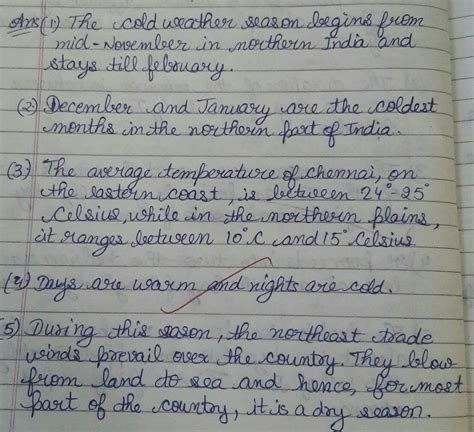 Ans(1) The cold weather season begins from
mid-November in northern India and
stays till february.
(2) December and January are the coldest
months in the northern part of India.
(3) The average temperature of chennai, on
the eastern coast, is between 24°-25°
Celsius, while in the northern plains,
it ranges between 10°C and 15° Celsius
(4) Days are warm and nights are cold.
(5) During this season, the northeast trade
winds prevail over the country. They blow
from land to sea and hence, for most
part of the country, it is a dry season.